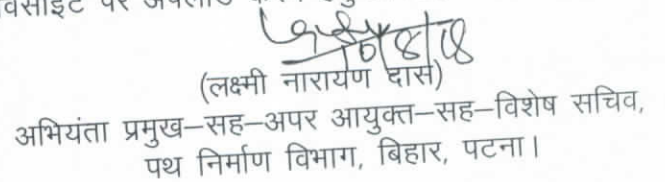 वेबसाइट पर अपलोड
(लक्ष्मी नारायण दास)
अभियंता प्रमुख–सह–अपर आयुक्त–सह–विशेष सचिव,
पथ निर्माण विभाग, बिहार, पटना।